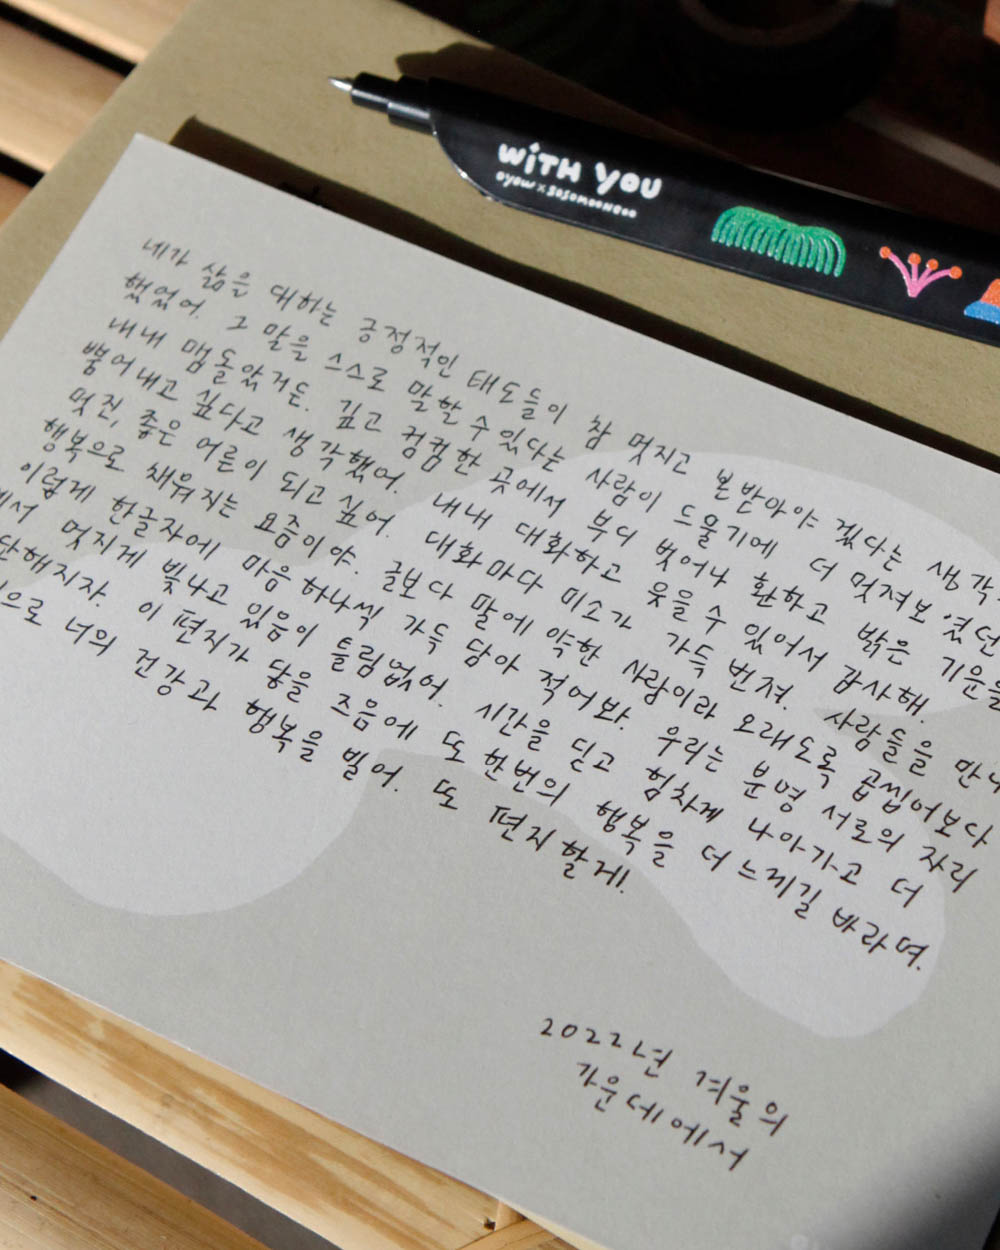 WITH YOU
OYOW x SOSOMOONGOO
네가 삶을 대하는 긍정적인 태도들이 참 멋지고 본받아야 겠다는 생각
했었어. 그 말을 스스로 말할 수 있다는 사람이 드물기에 더 멋져보였던
내내 맴돌았거든. 깊고 컴컴한 곳에서 부디 벗어나 환하고 밝은 기운을
뿜어내고 싶다고 생각했어. 내내 대화하고 웃을 수 있어서 감사해.
멋진, 좋은 어른이 되고 싶어. 대화마다 미소가 가득 번져. 사람들을 만나
행복으로 채워지는 요즘이야. 글보다 말에 약한 사람이라 오래도록 곱씹어보다
이렇게 한글자에 마음 하나씩 가득 담아 적어봐. 우리는 분명 서로의 자리
에서 멋지게 빛나고 있음이 틀림없어. 시간을 딛고 힘차게 나아가고 더
단해지자. 이 편지가 닿을 즈음에 또 한번의 행복을 더 느끼길 바라며.
으로 너의 건강과 행복을 빌어. 또 편지할게!
2022년 겨울의
가운데에서